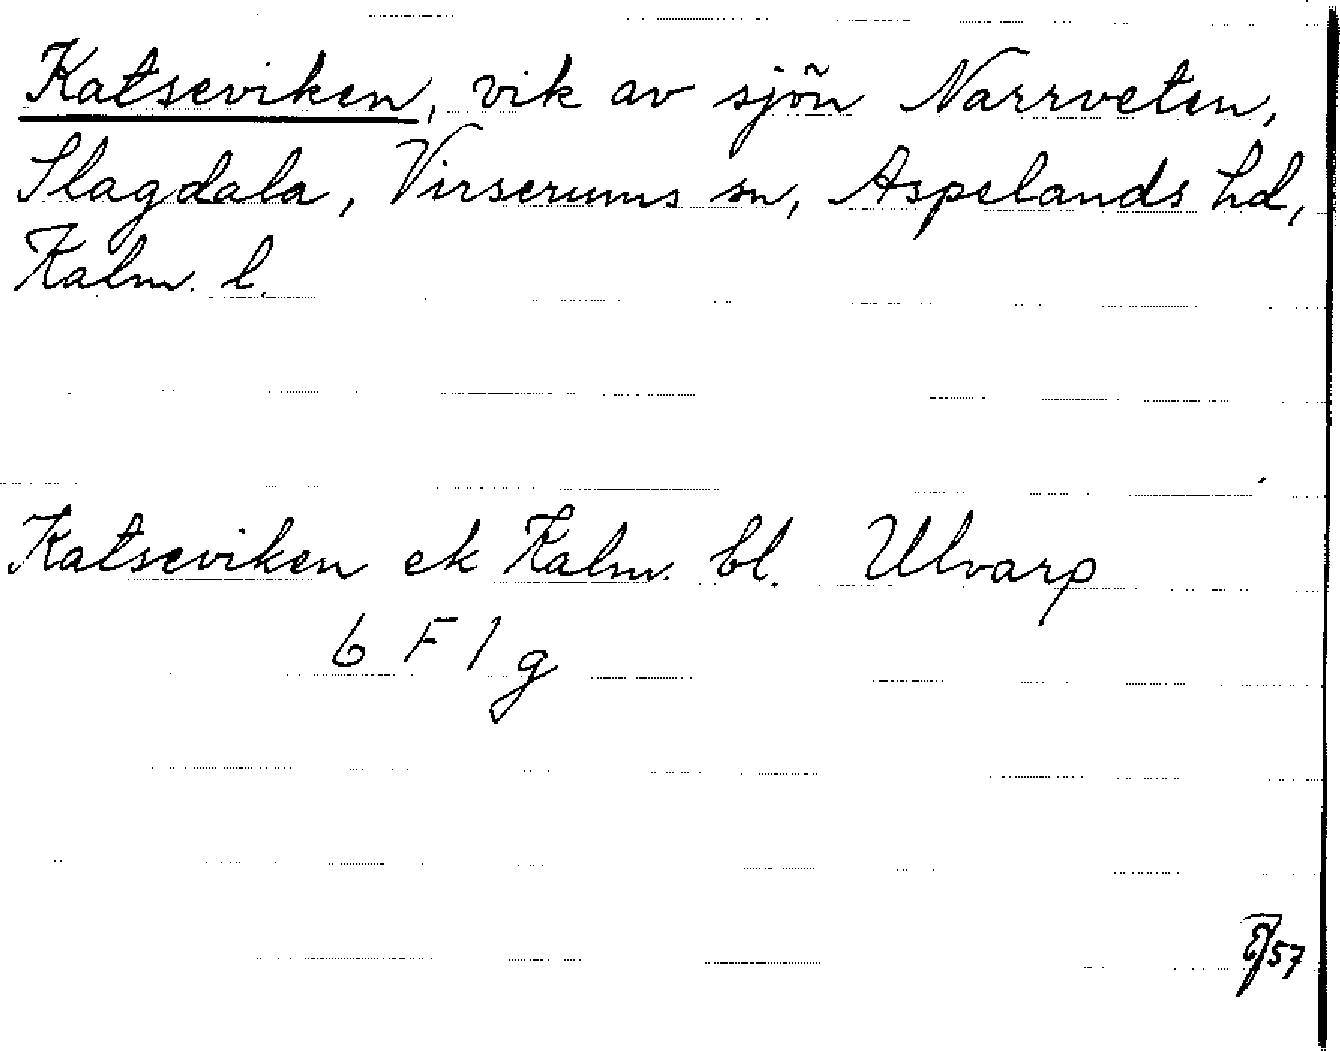 Katseviken, vik av sjön Narrveten,
Slagdala, Virserums sn, Aspelands hd,
Kalm. l.
Katseviken ek Kalm. bl. Ulvarp
6 F 1 g
57